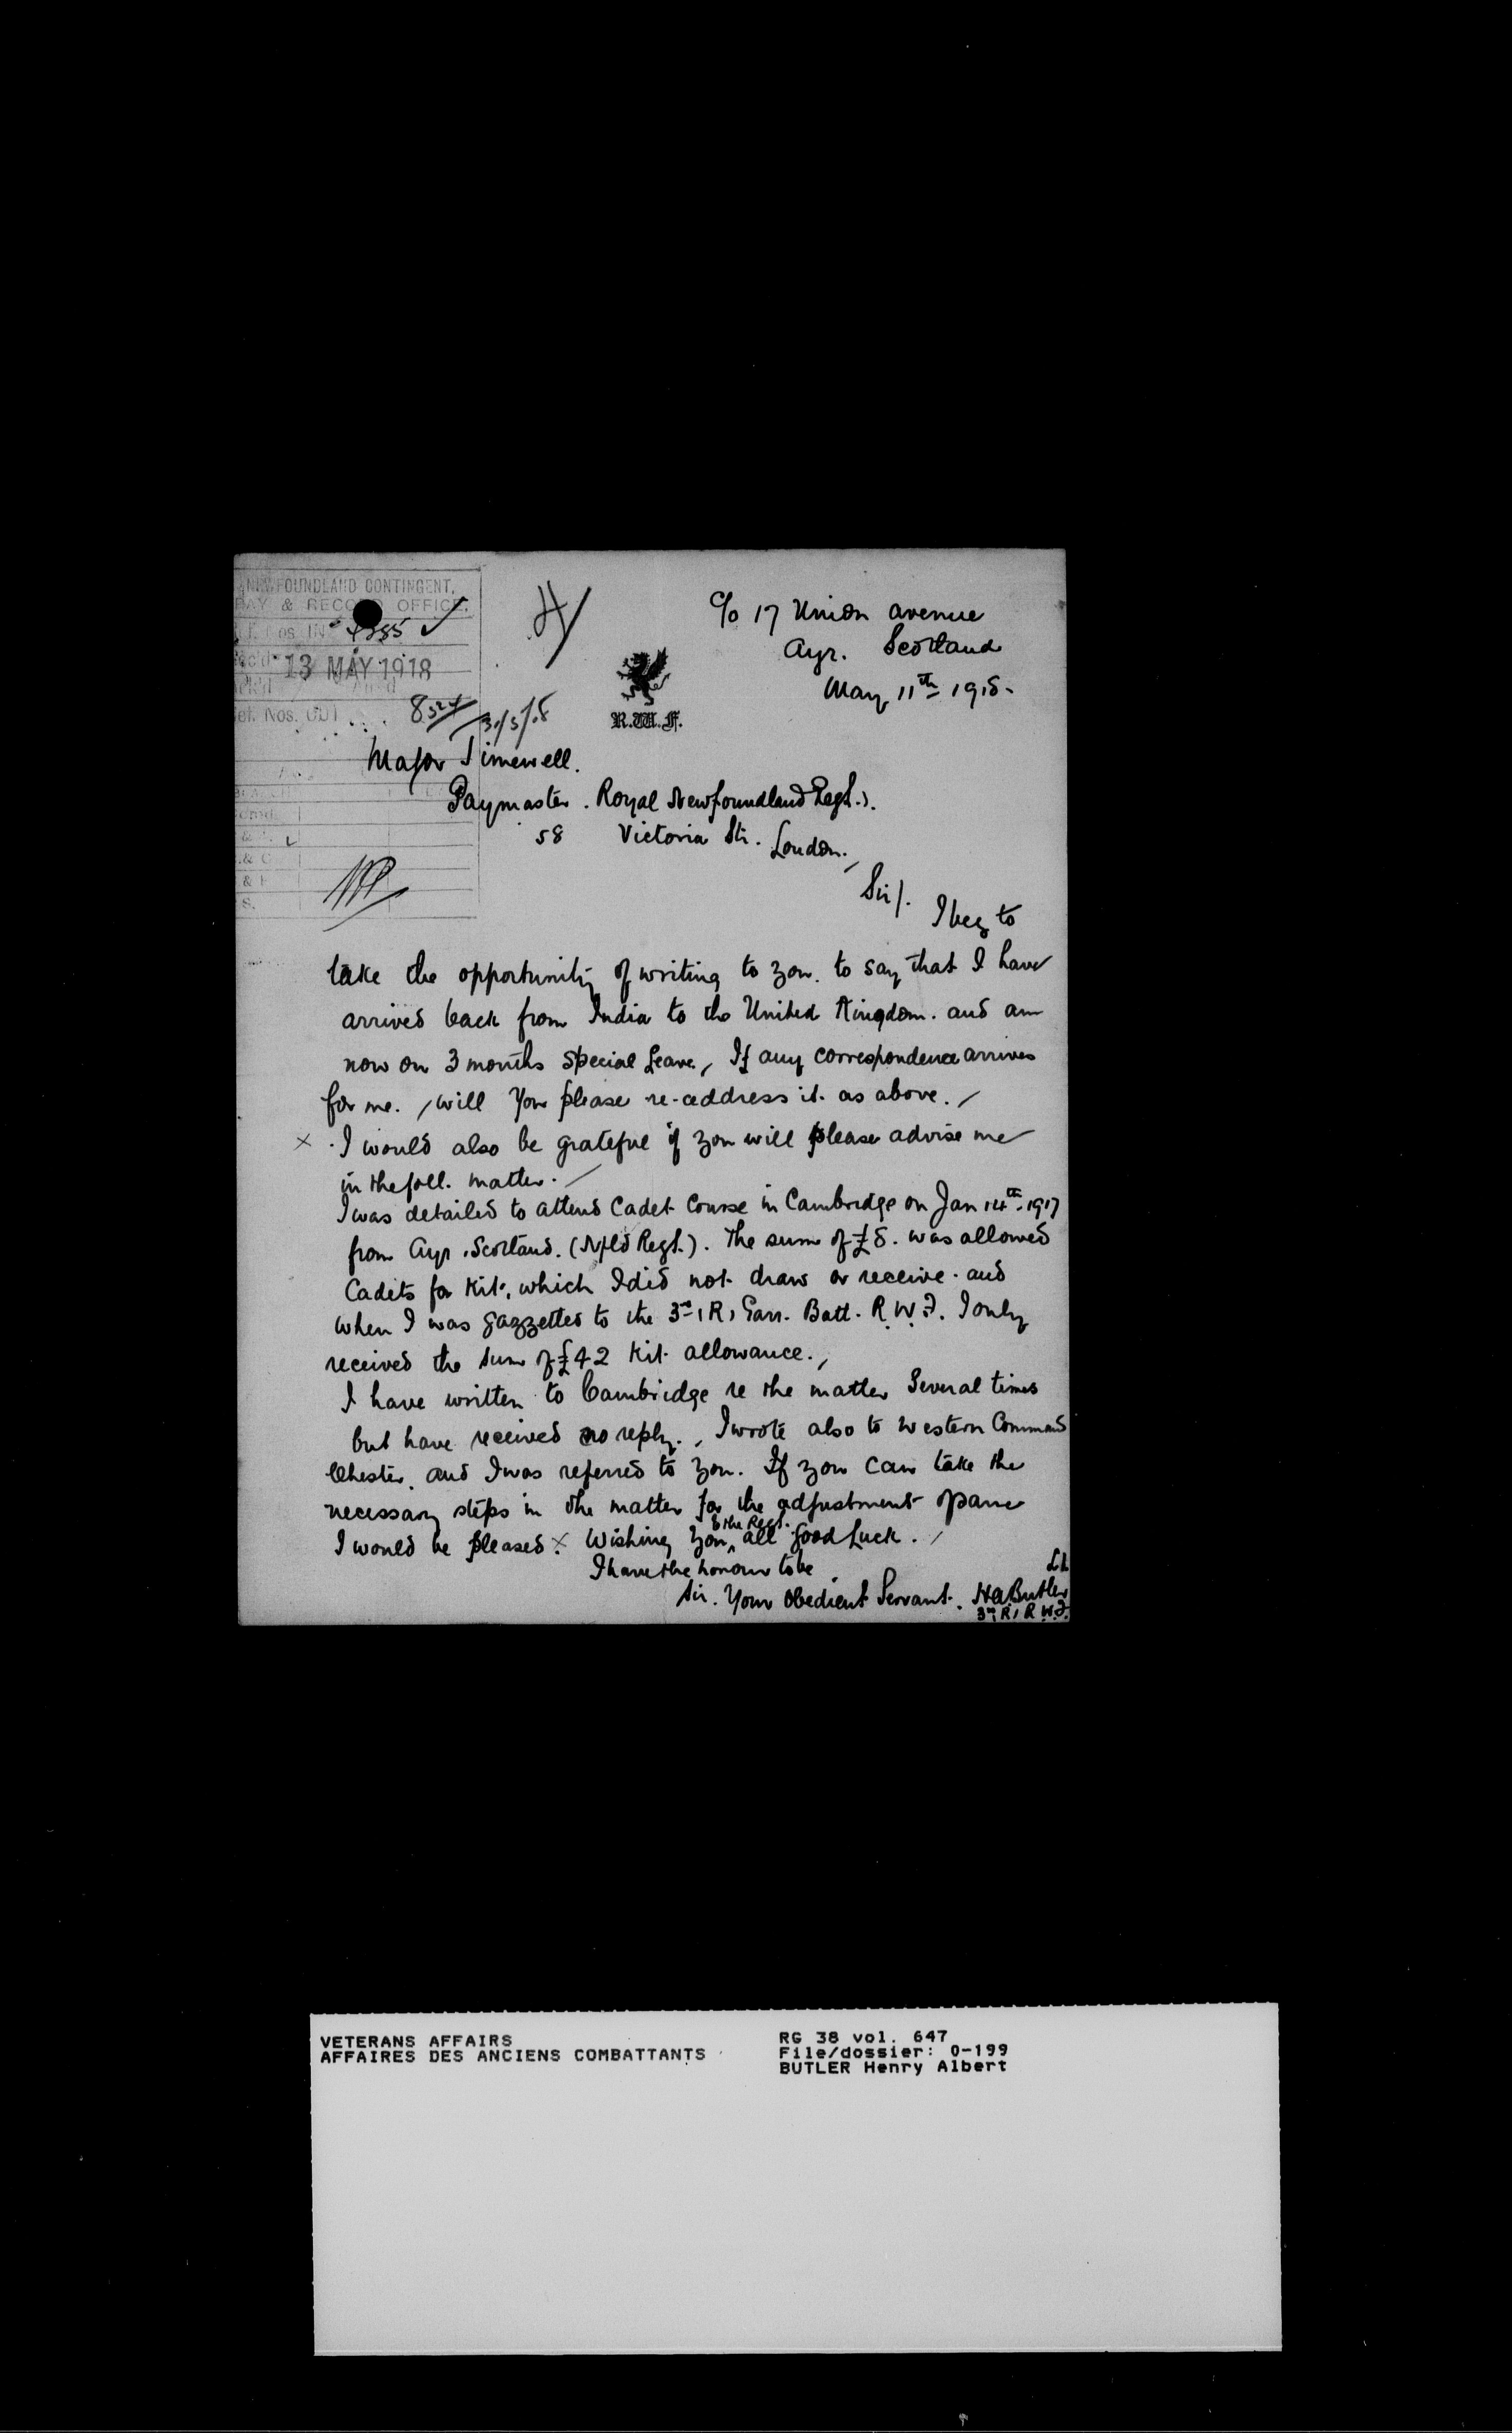 NEWFOUNDLAND CONTINGENT,
PAY & RECORD OFFICE.
13 MAY 1918
ef. Nos. OUT
c/o 17 Union Avenue
Ayr. Scotland
May 11th 1918.
R.W.F.
Major Timewell.
Paymaster. Royal Newfoundland Regt.).
58 Victoria Str. London.
Sir/.
I beg to
take the opportunity of writing to you. to say that I have
arrived back from India to the United Kingdom. and am
now on 3 months special leave, If any correspondence arrives
for me. , will you please re-address it as above. /
x . I would also be grateful if you will please advise me
in the foll. matter. /
I was detailed to attend Cadet Course in Cambridge on Jan 14th 1917
from Ayr. Scotland. (Nfld Regt.). The sum of £8. was allowed
Cadets for Kit, which I did not draw or receive. and
when I was gazzetted to the 3rd (R) Garr. Batt. R.W.F. I only
received the sum of £42 Kit allowance.,
I have written to Cambridge re the matter several times
but have received no reply. , I wrote also to Western Command
Chester. and I was referred to you. If you can take the
necessary steps in the matter for the adjustment of same
I would be pleased. x Wishing you & the Regt. all good luck. /
I have the honour to be
Sir. Your Obedient Servant. HA Butler Lt
3rd (R) R.W.F.
VETERANS AFFAIRS
AFFAIRES DES ANCIENS COMBATTANTS
RG 38 vol. 647
File/dossier: 0-199
BUTLER Henry Albert